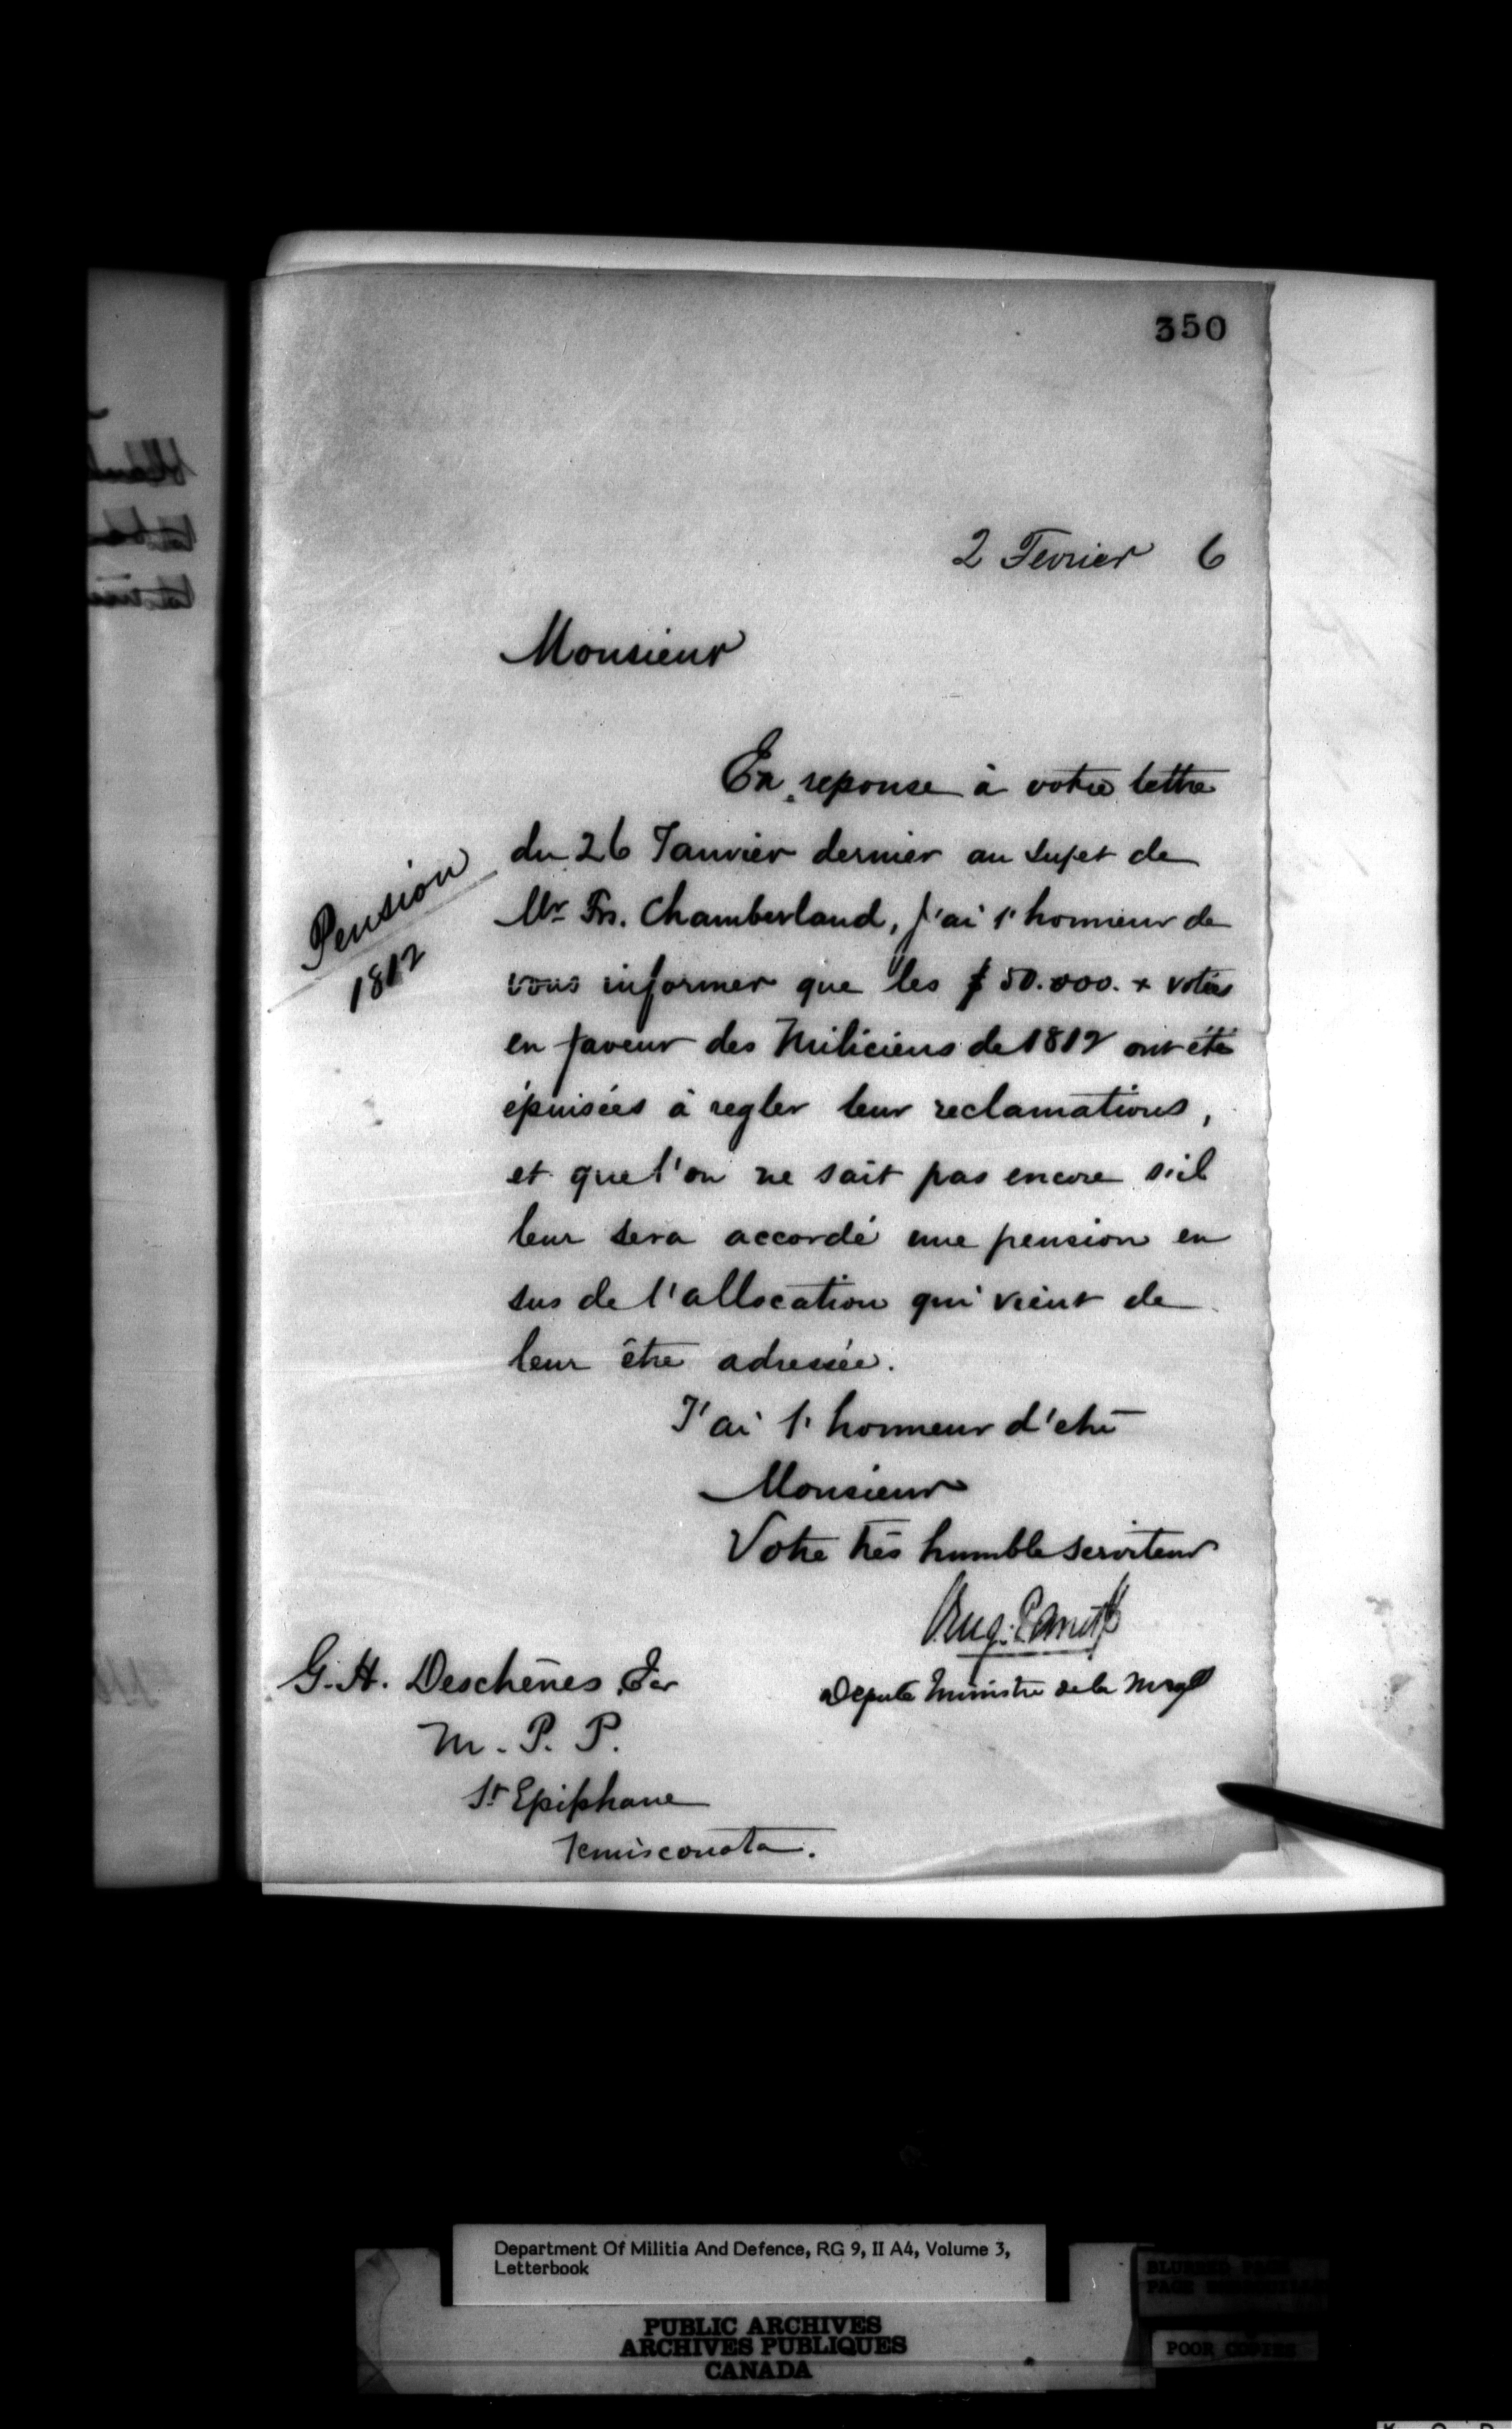 350
2 Fevrier 6
Monsieur
En reponse à votre lettre
du 26 Janvier dernier au sujet de
Mr Frs. Chamberland, j'ai l'honneur de
vous informer que les $50.000. x votées
en faveur des Miliciens de 1812 ont été
épuisées à regler leur reclamations,
et que l'on ne sait pas encore s'il
leur sera accordé une pension en
sus de l'allocation qui vient de
leur être adressée.
J'ai l'honneur d'etre
Monsieur
Votre très humble serviteur
Pension
1812
Eug. Panet
Depute Ministre de la
G. H. Deschênes
M. P. P.
St Epiphane
Temisconata.
Department Of Militia And Defence, RG 9, II A4, Volume 3,
Letterbook
PUBLIC ARCHIVES
ARCHIVES PUBLIQUES
CANADA
POOR COPIES